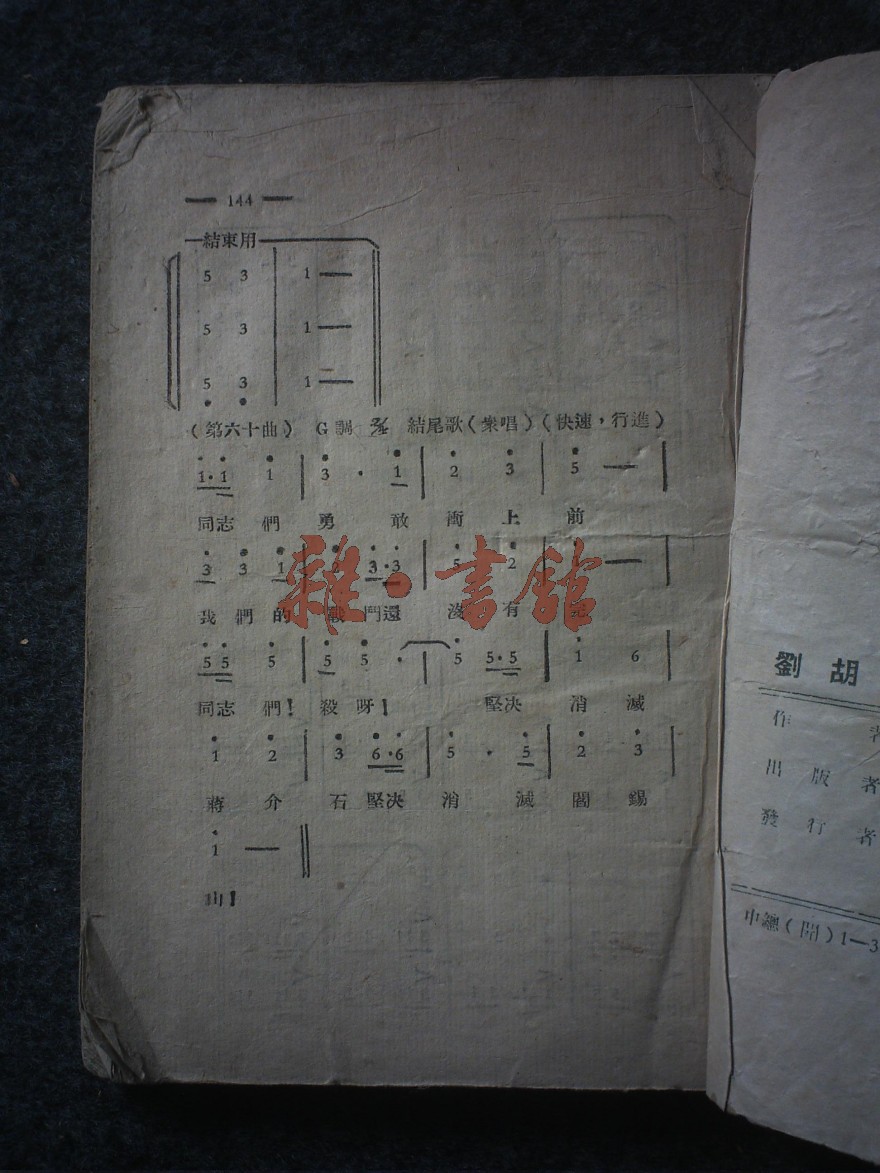 — 144 —
結束用
5 3 | 1 —
5 3 | 1 —
5 3 | 1 —
(第六十曲) G調 2/4 結尾歌(衆唱)(快速,行進)
1·1 1 | 3 · 1 | 2 3 | 5 — |
同志們勇敢衝上前
3 3 1 | 2 3·3 | 5 2 | — |
我們的戰鬥還沒有完
5 5 5 | 5 5 · | 5 5·5 | 1 6
同志們!殺呀!堅决消滅
1 2 | 3 6·6 | 5 · 5 | 2 3 |
蔣介石堅决消滅閻錫
1 — ‖
山!
雜·書館
劉胡
作者
出版者
發行者
中總(開)1—3